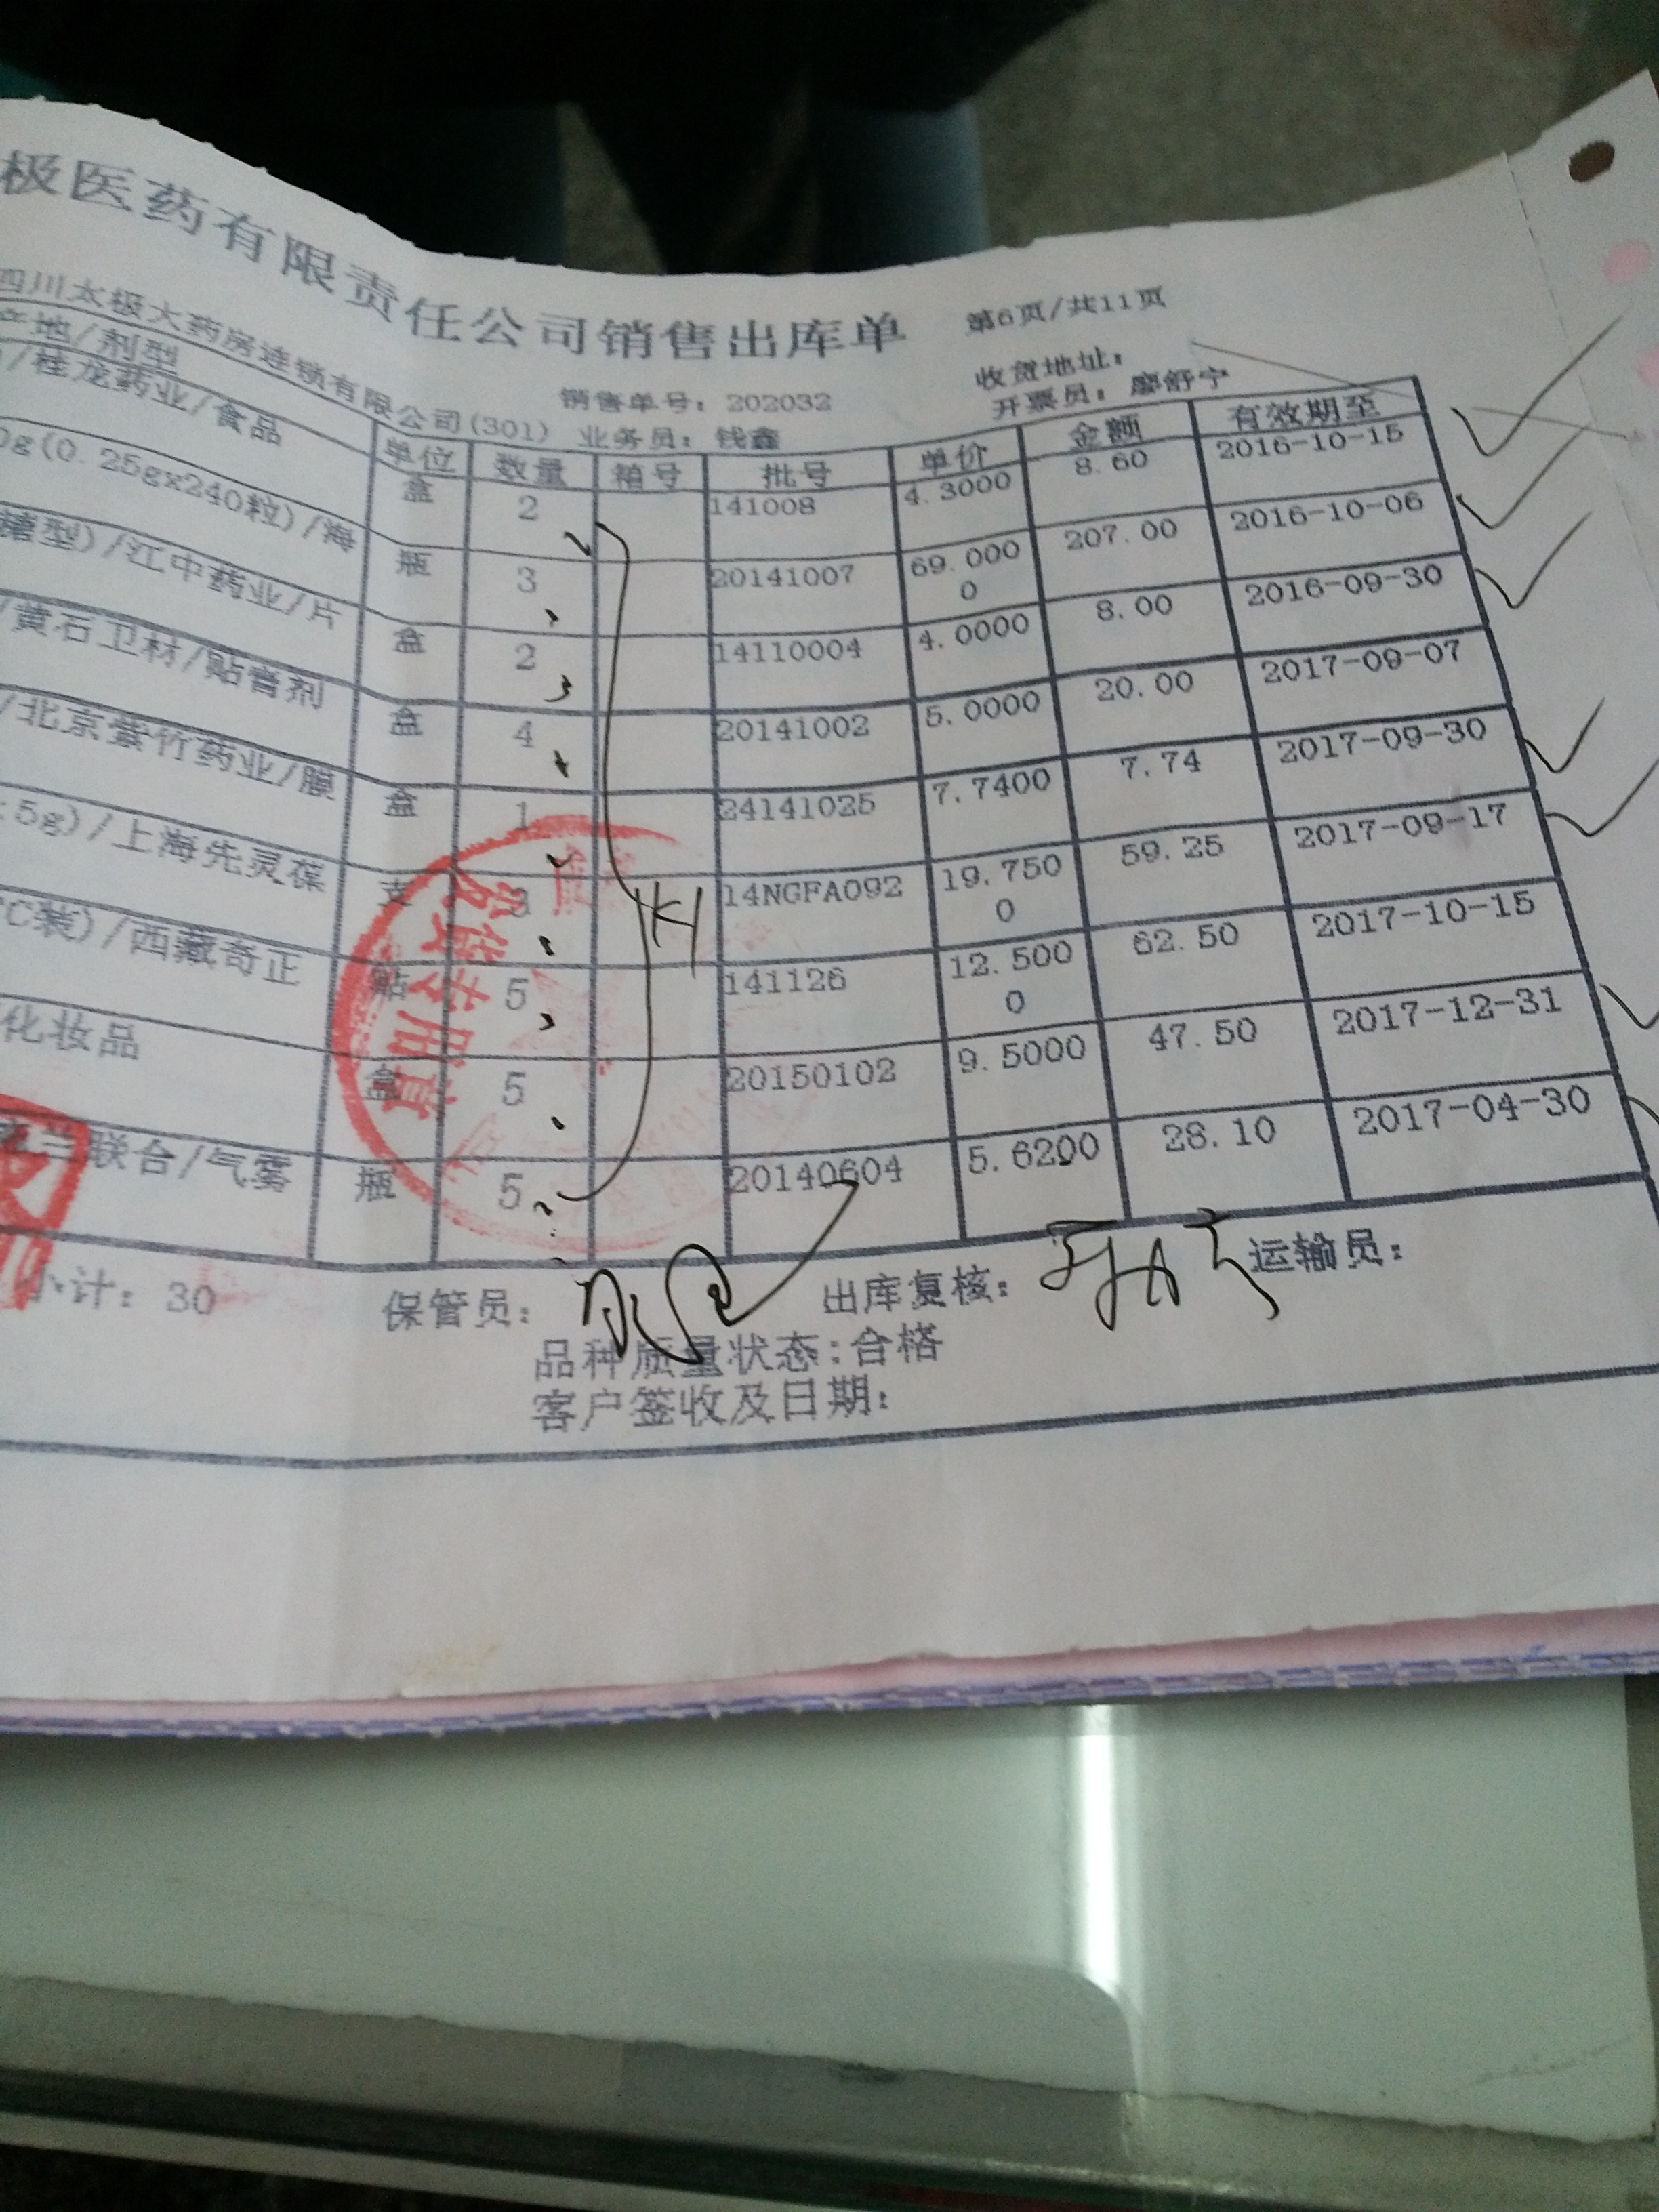 极医药有限责任公司销售出库单 第6页/共11页
四川太极大药房连锁有限公司(301) 销售单号：202032 收货地址：
业务员：钱鑫 开票员：廖舒宁
产地/剂型 单位 数量 箱号 批号 单价 金额 有效期至
/桂龙药业/食品 盒 2 141008 4.3000 8.60 2016-10-15
0g(0.25gx240粒)/海 瓶 3 20141007 69.0000 207.00 2016-10-06
糖型)/江中药业/片 盒 2 14110004 4.0000 8.00 2016-09-30
/黄石卫材/贴膏剂 盒 4 20141002 5.0000 20.00 2017-09-07
/北京紫竹药业/膜 盒 1 24141025 7.7400 7.74 2017-09-30
:5g)/上海先灵葆 支 3 14NGFA092 19.7500 59.25 2017-09-17
C装)/西藏奇正 贴 5 141126 12.5000 62.50 2017-10-15
化妆品 盒 5 20150102 9.5000 47.50 2017-12-31
兰联合/气雾 瓶 5 20140604 5.6200 28.10 2017-04-30
小计：30 保管员： 出库复核： 运输员：
品种质量状态:合格
客户签收及日期：